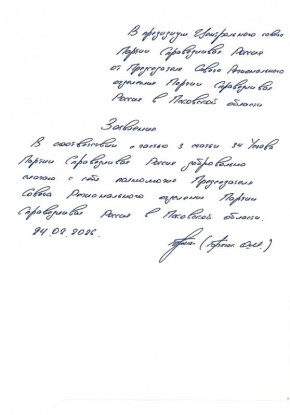 В президиум Центрального совета
Партии Справедливая Россия
от Председателя Совета Регионального
отделения Партии Справедливая
Россия в Псковской области
Заявление
В соответствии с частью 3 статьи 34 Устава
Партии Справедливая Россия добровольно
слагаю с себя полномочия Председателя
Совета Регионального отделения Партии
Справедливая Россия в Псковской области.
24.02.2026.